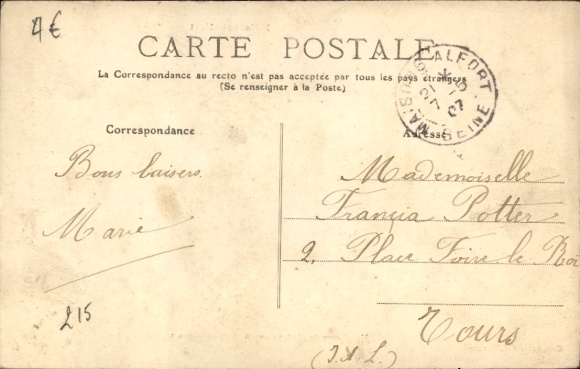 4€
CARTE POSTALE
La Correspondance au recto n'est pas acceptée par tous les pays étrangers
(Se renseigner à la Poste)
MAISONS-ALFORT
07
SEINE
Correspondance
Adresse
Bons baisers
Marie
Mademoiselle
Francia Potter
2, Place Foire le Roi
Tours
(I & L.)
215